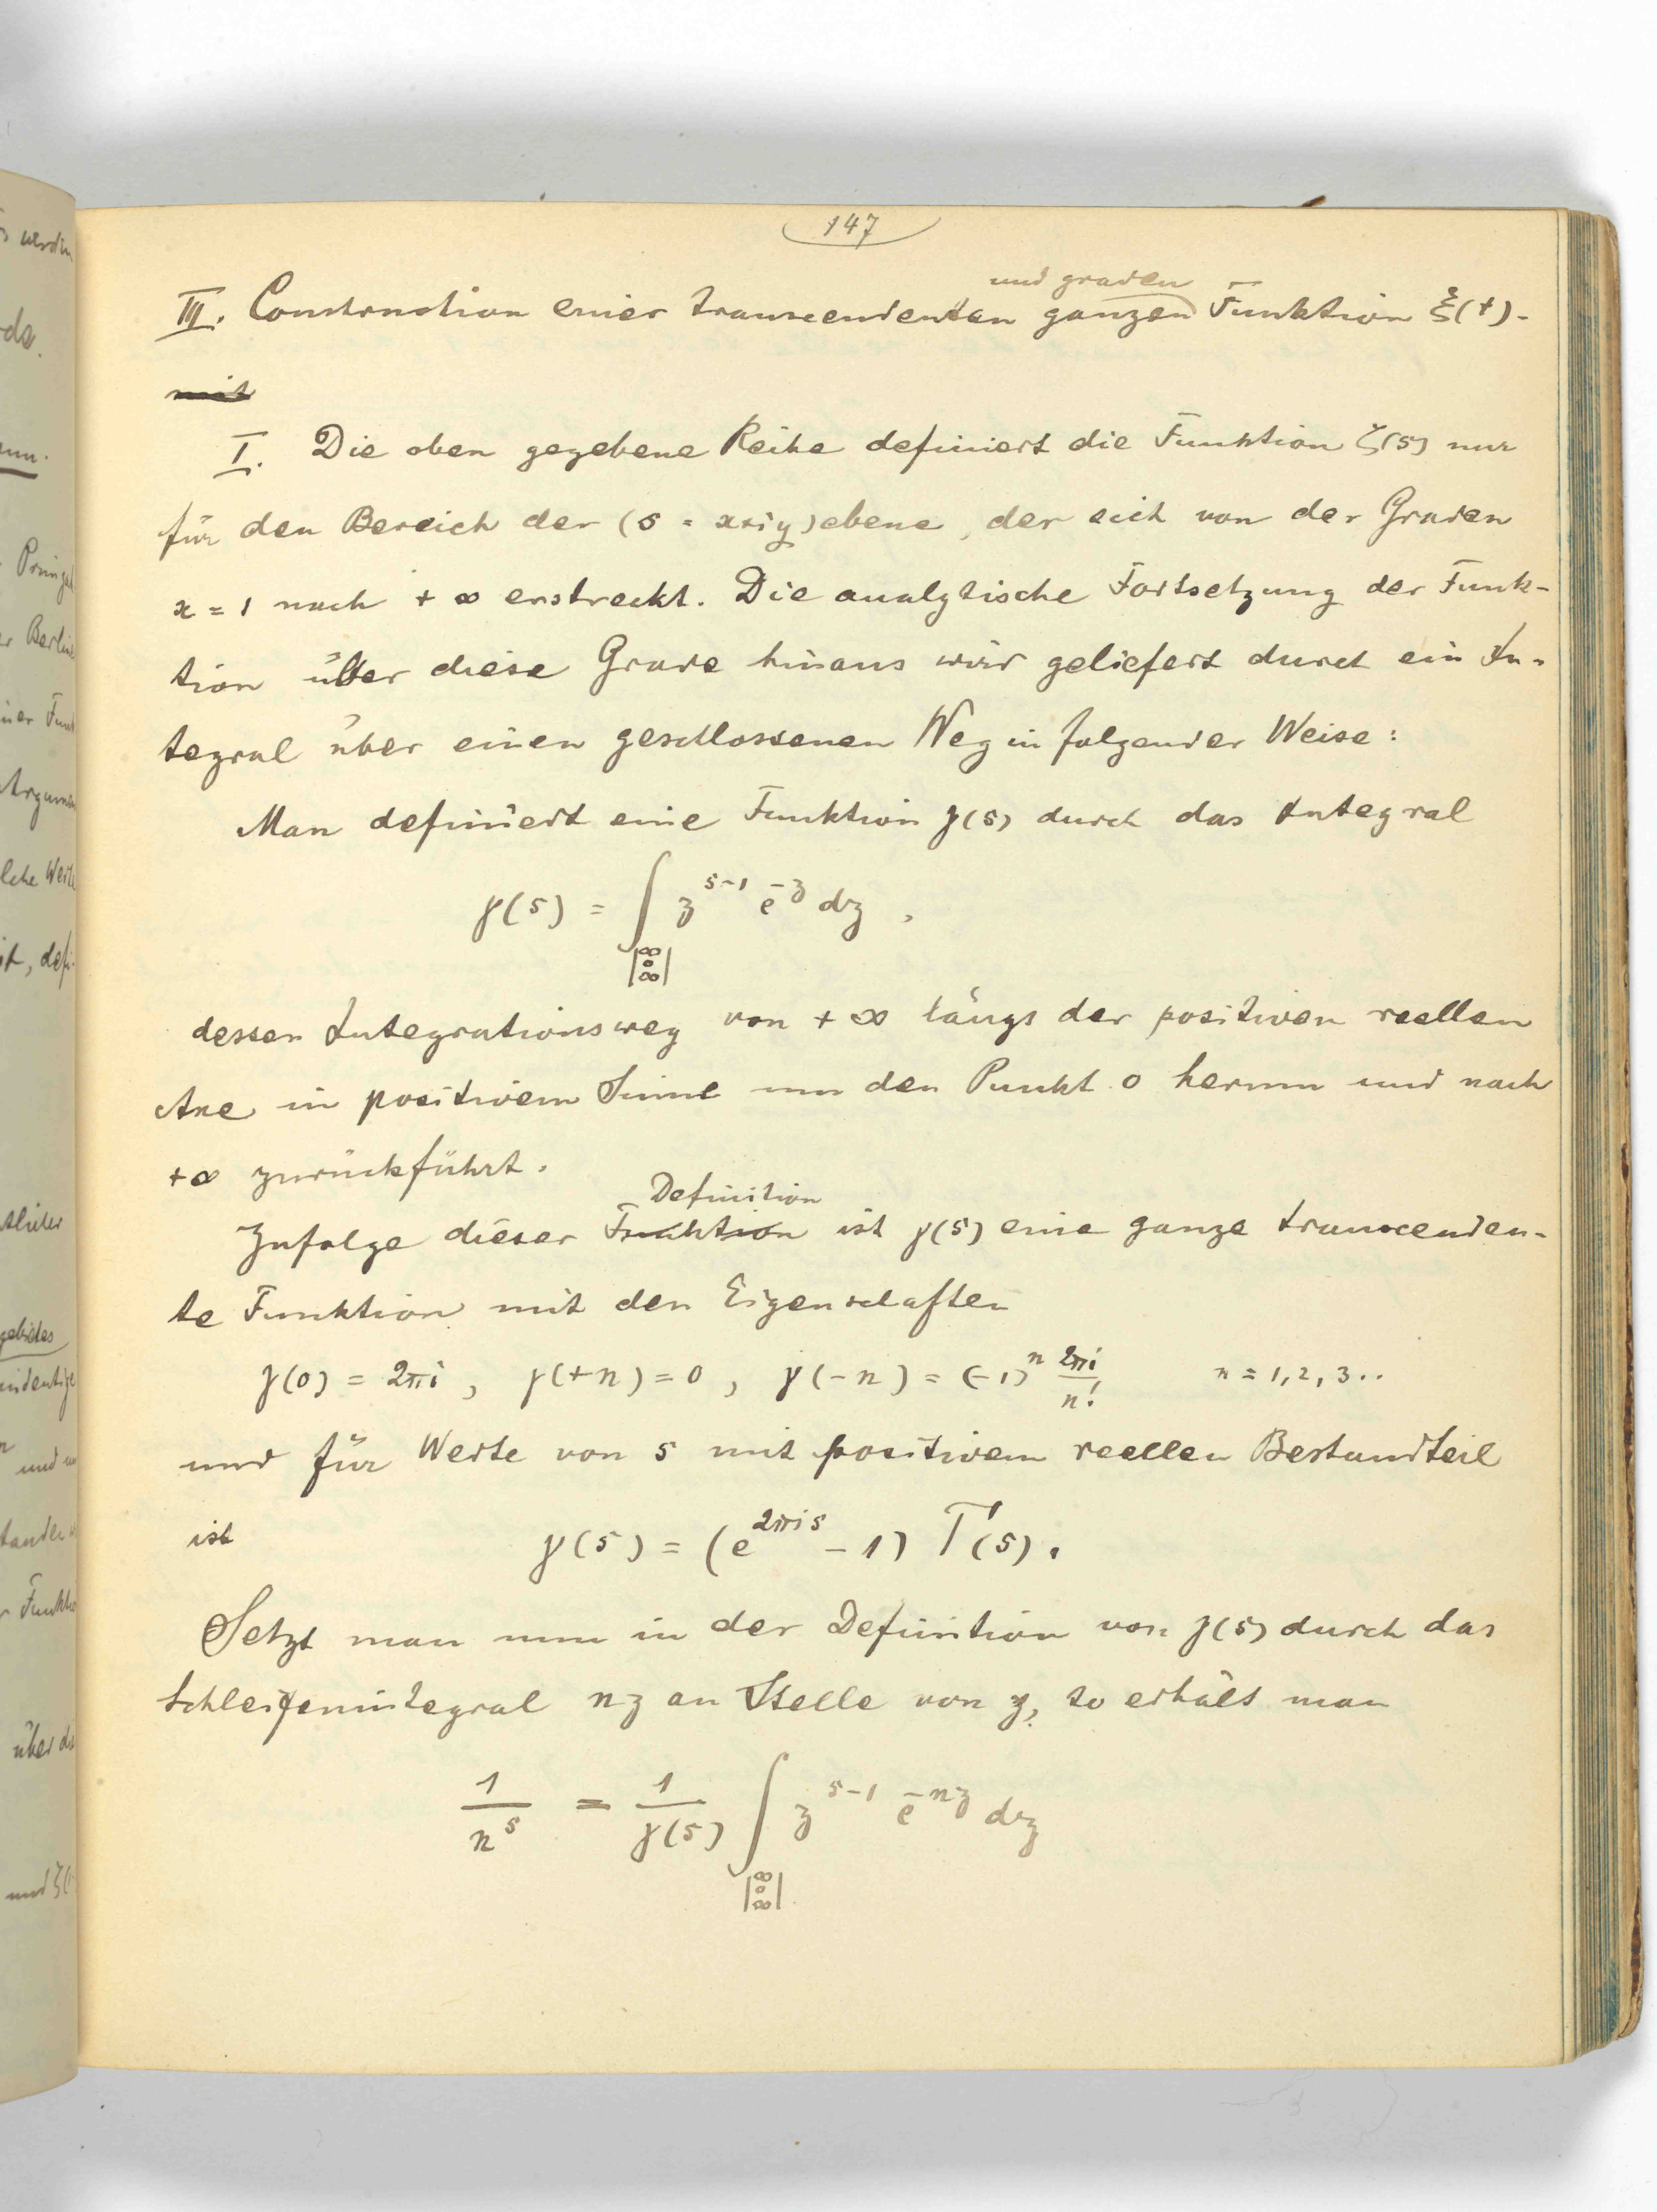 147
und graden
III. Construction einer transcendenten ganzen Funktion ξ(t).
mit
I. Die oben gegebene Reihe definiert die Funktion ζ(s) nur
für den Bereich der (s = x+iy)ebene, der sich von der Graden
x = 1 nach + ∞ erstreckt. Die analytische Fortsetzung der Funk-
tion über diese Grade hinaus wird geliefert durch ein In-
tegral über einen geschlossenen Weg in folgender Weise:
Man definiert eine Funktion γ(s) durch das Integral
γ(s) = ∫ z^{s-1} e^{-z} dz ,
|∞ 0 ∞|
dessen Integrationsweg von + ∞ längs der positiven reellen
Axe in positivem Sinne um den Punkt 0 herum und nach
+∞ zurückführt.
Definition
Zufolge dieser Funktion ist γ(s) eine ganze transcenden-
te Funktion mit den Eigenschaften
γ(0) = 2πi , γ(+n) = 0 , γ(-n) = (-1)^n 2πi/n! n = 1, 2, 3..
und für Werte von s mit positivem reellen Bestandteil
ist γ(s) = (e^{2πis} - 1) Γ(s).
Setzt man nun in der Definition von γ(s) durch das
Schleifenintegral nz an Stelle von z, so erhält man
1/n^s = 1/γ(s) ∫ z^{s-1} e^{-nz} dz
|∞ 0 ∞|